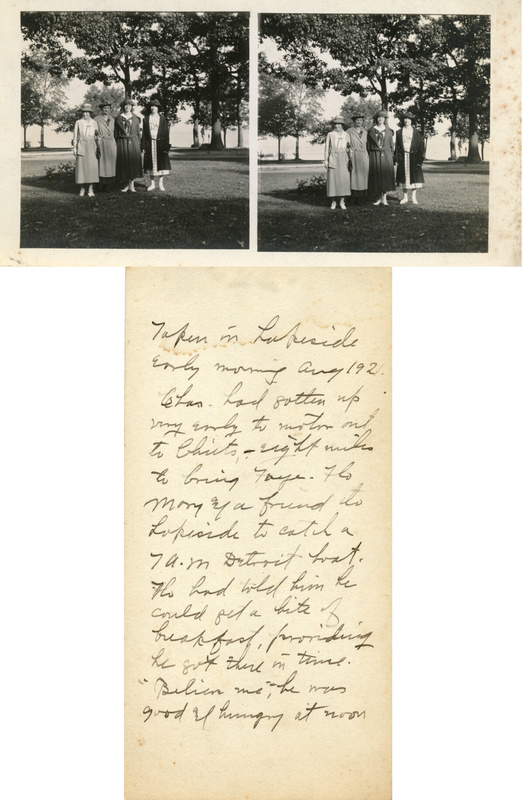 Taken in Lakeside
Early morning Aug 192
Chas. had gotten up
very early to motor out
to - eight miles
to bring Faye. Flo
Mary & a friend to
Lakeside to catch a
7 A.M Detroit boat.
Flo had told him he
could get a bite of
breakfast, providing
he got there in time.
"Believe me", he was
good & hungry at noon